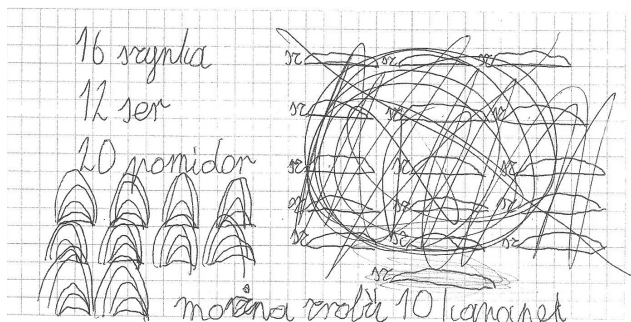 16 szynka
12 ser
20 pomidor
sz sz sz
sz sz
sz sz sz
sz sz sz
sz sz sz
sz
można zrobić 10 kanapek